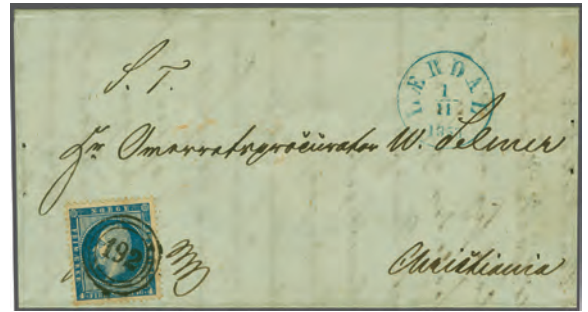 S. T.
LÆRDAL
1
11
Hr Overretsprocurator W. Selmer
192
Christiania